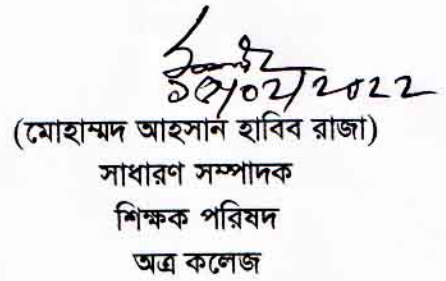 /02/2022
(মোহাম্মদ আহসান হাবিব রাজা)
সাধারণ সম্পাদক
শিক্ষক পরিষদ
অত্র কলেজ